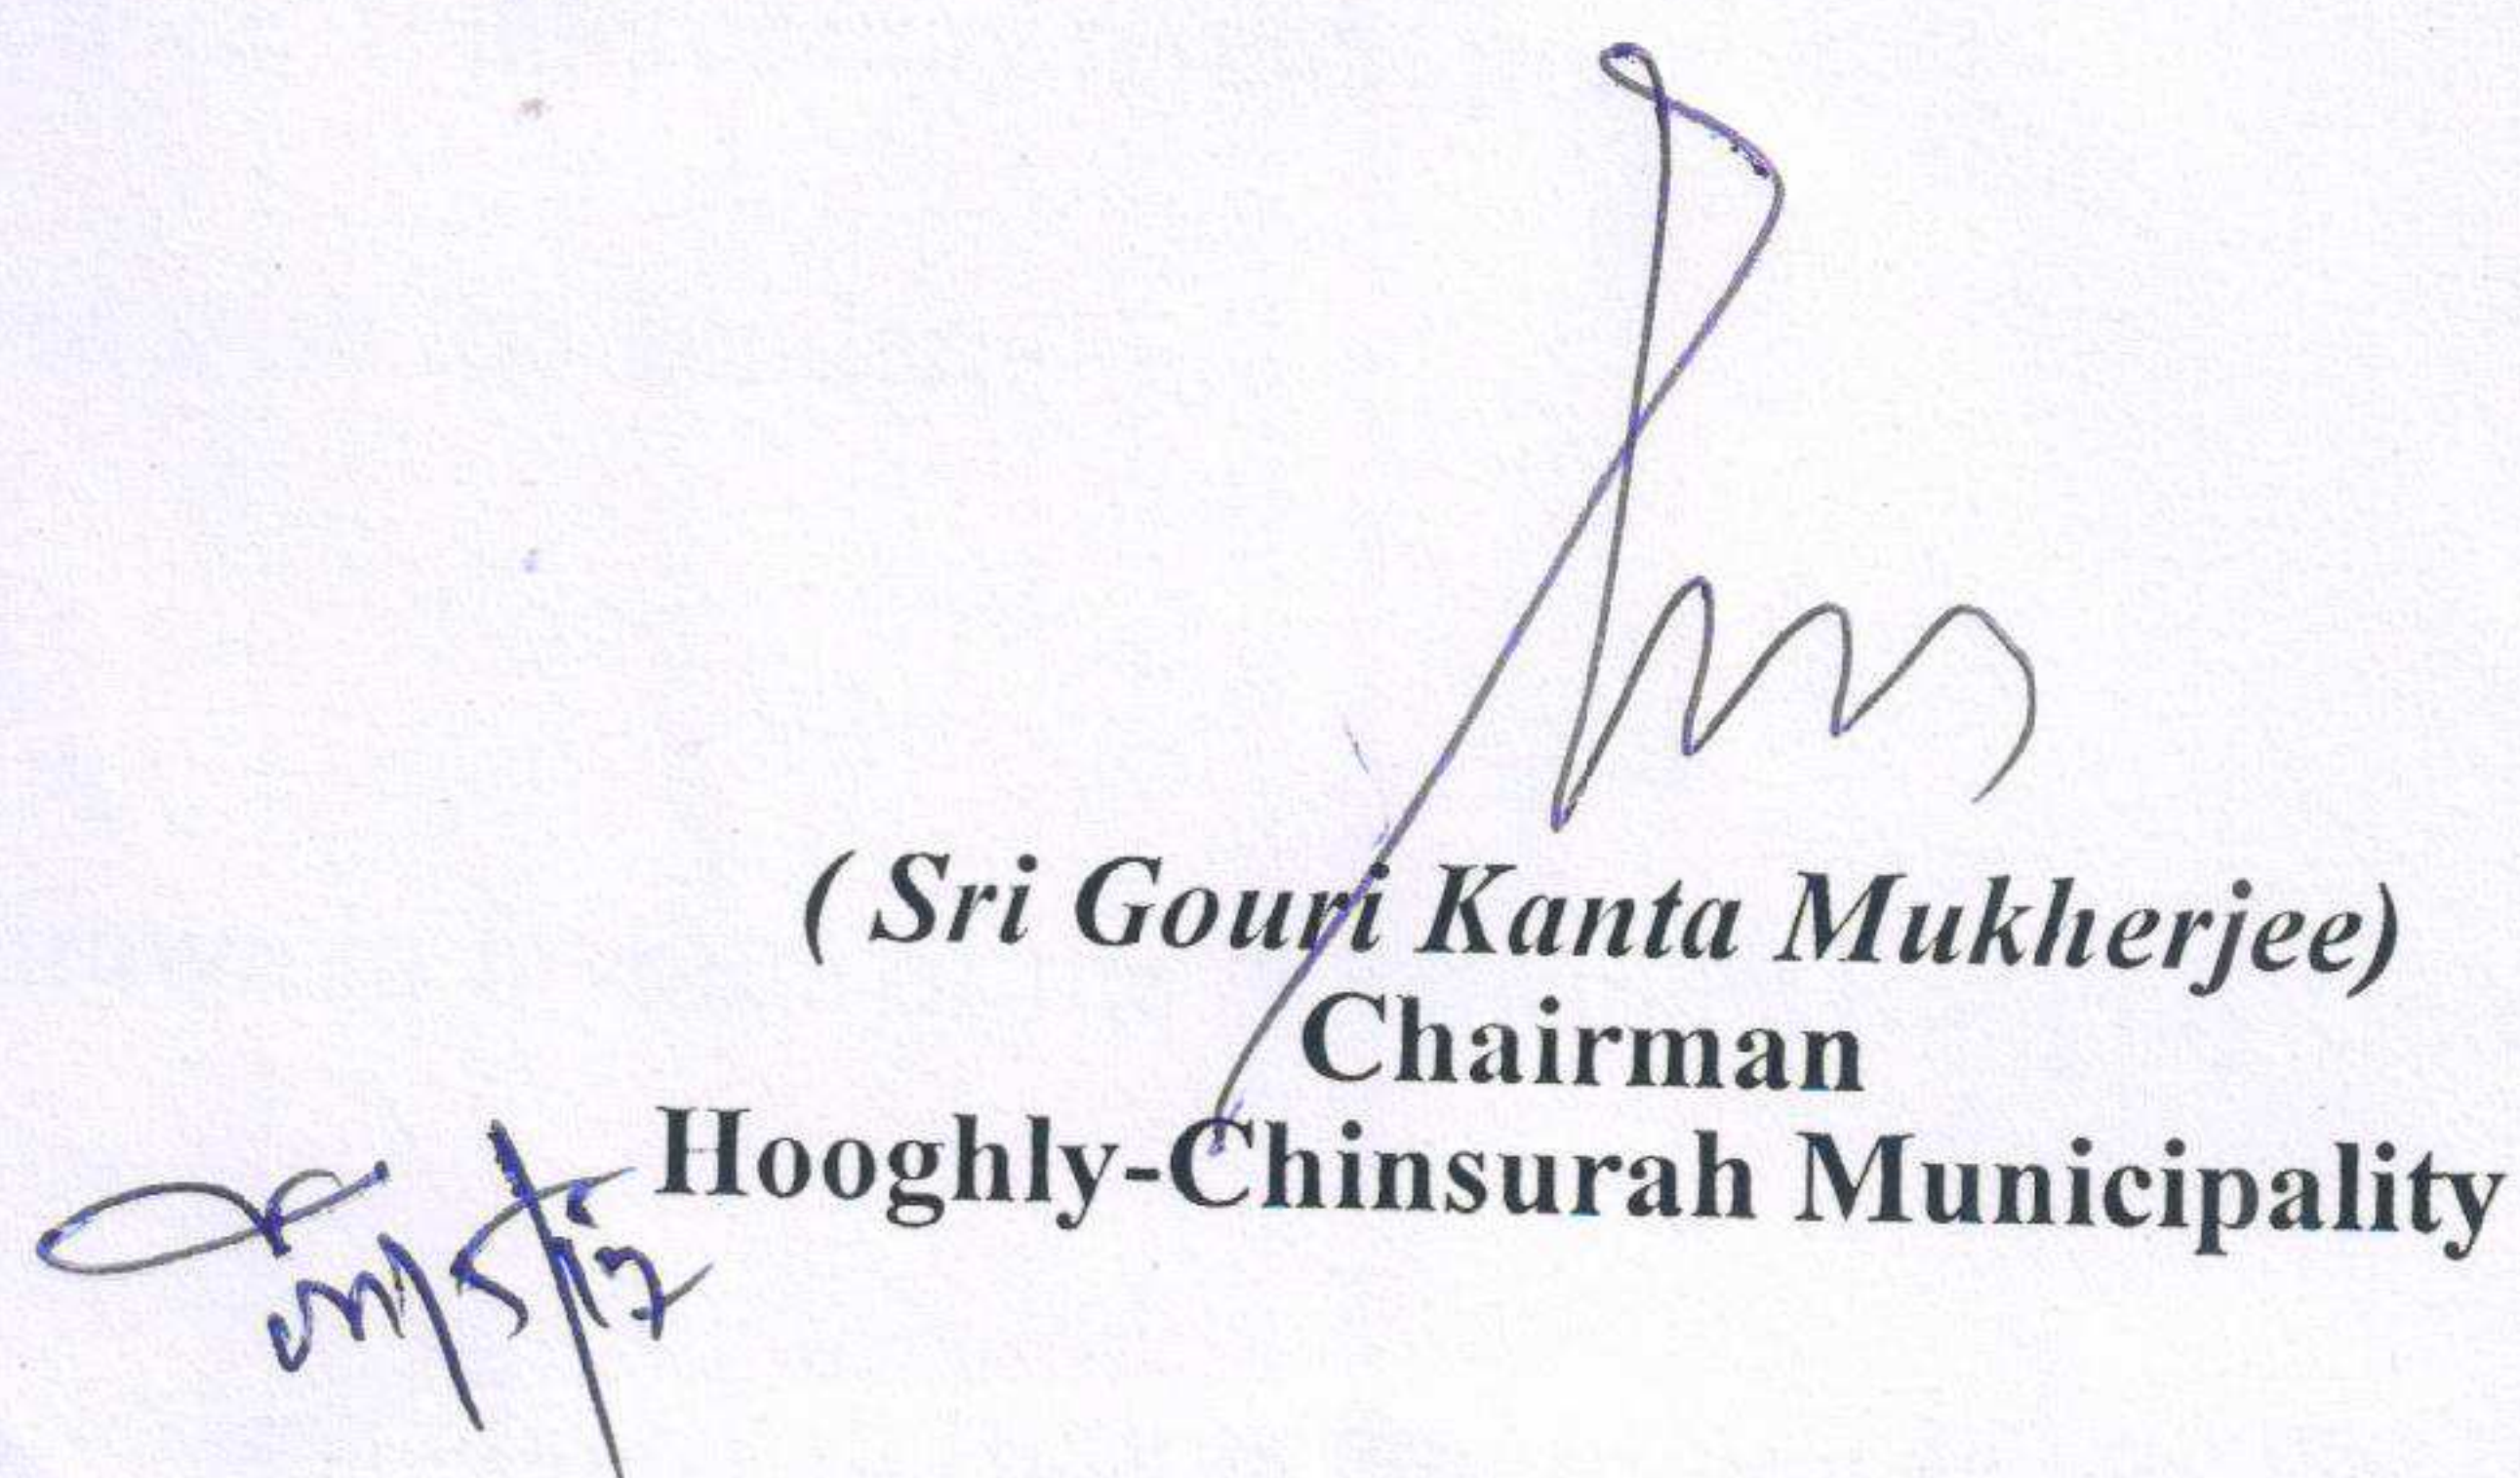 ( Sri Gouri Kanta Mukherjee)
Chairman
Hooghly-Chinsurah Municipality